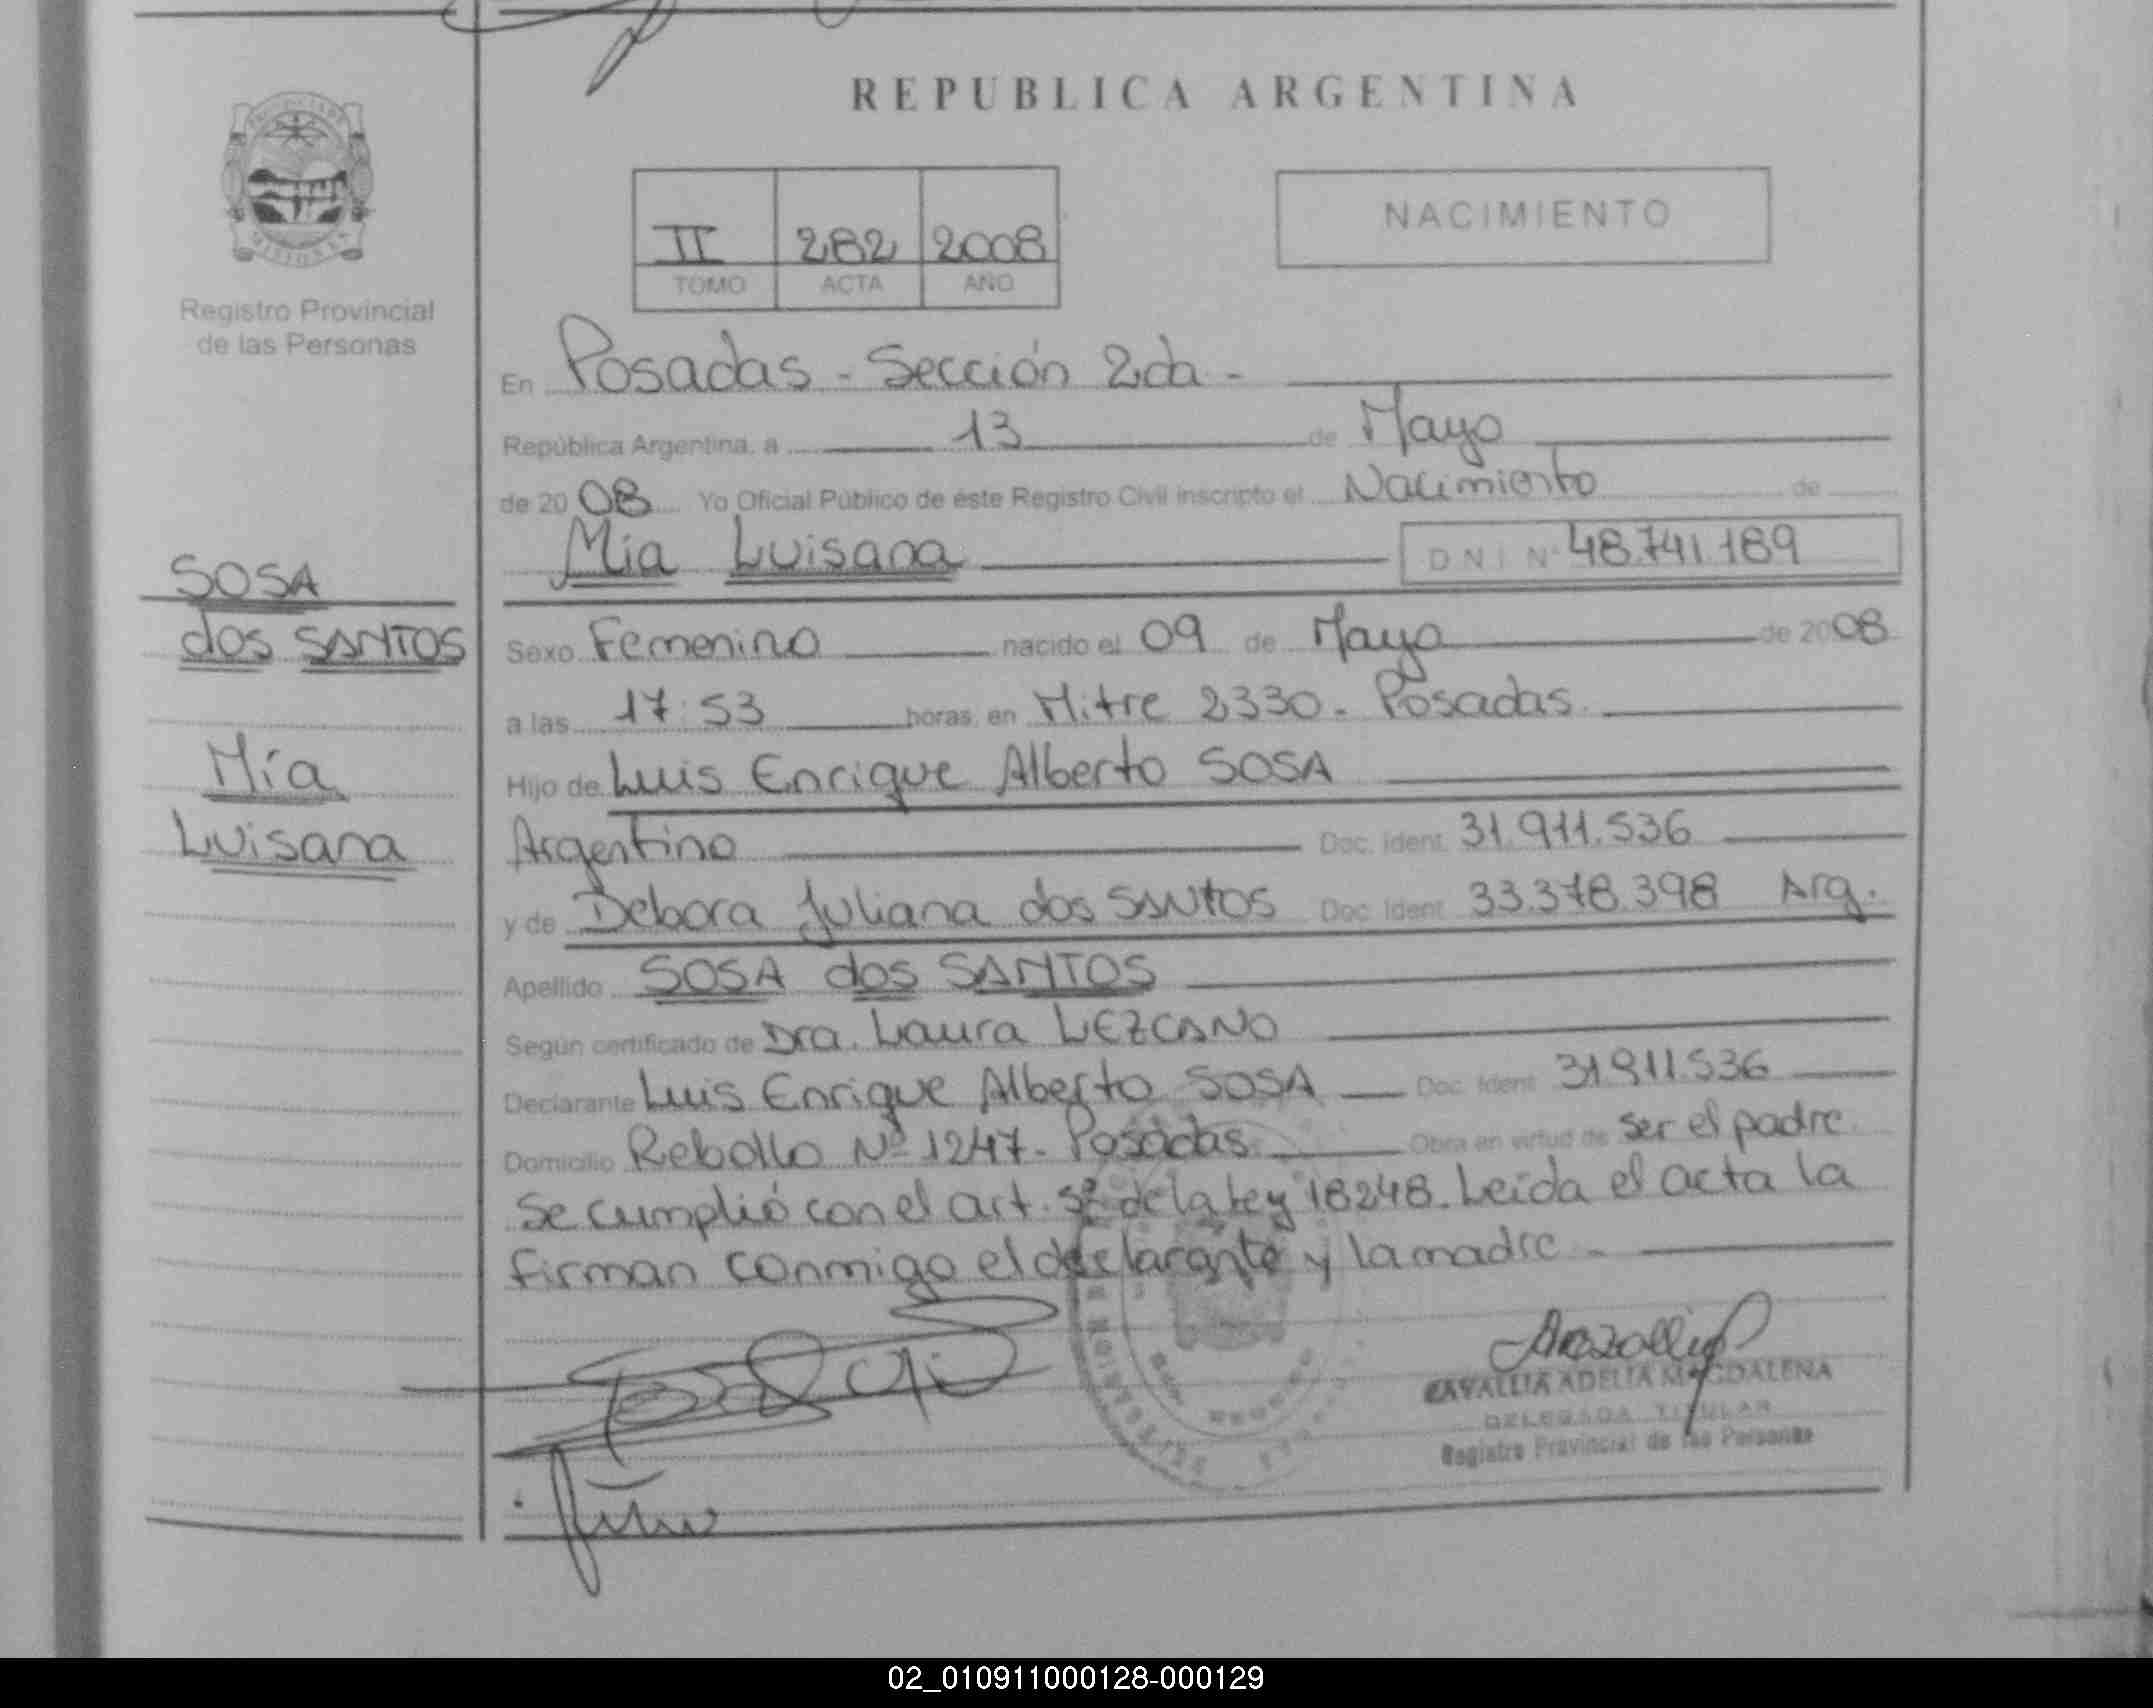 REPUBLICA ARGENTINA
II 282 2008
TOMO ACTA AÑO
NACIMIENTO
Registro Provincial
de las Personas
SOSA
dos SANTOS
Mía
Luisana
En Posadas - Sección 2da -
República Argentina, a 13 de Mayo
de 2008 Yo Oficial Público de éste Registro Civil inscripto el Nacimiento de
Mía Luisana DNI Nº 48.741.189
Sexo Femenino nacido el 09 de Mayo de 2008
a las 17:53 horas, en Mitre 2330. Posadas.
Hijo de Luis Enrique Alberto SOSA
Argentino Doc. Ident. 31.911.536
y de Debora Juliana dos SANTOS Doc. Ident. 33.378.398 Arg.
Apellido SOSA dos SANTOS
Según certificado de Dra. Laura LEZCANO
Declarante Luis Enrique Alberto SOSA Doc. Ident. 31.911.536
Domicilio Rebollo Nº 1247. Posadas. Obra en virtud de ser el padre.
Se cumplió con el art. de la Ley 18248. Leída el acta la
firman conmigo el declarante y la madre -
ADELIA MAGDALENA
DELEGADA TITULAR
Registro Provincial de las Personas
02_010911000128-000129